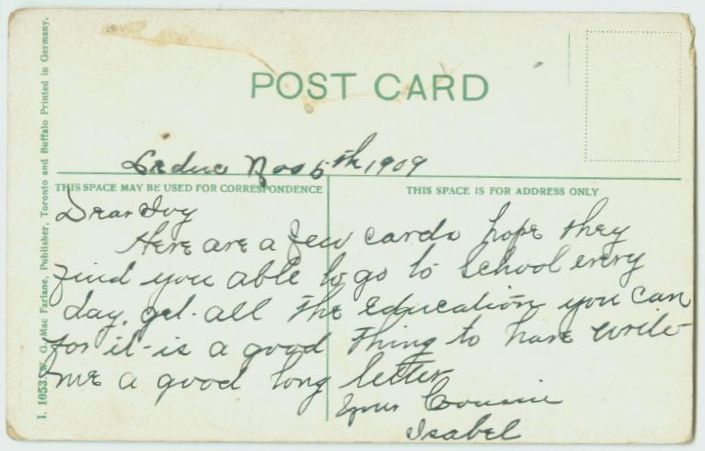 POST CARD
Leduc Nov 5th 1909
THIS SPACE MAY BE USED FOR CORRESPONDENCE
THIS SPACE IS FOR ADDRESS ONLY
Dear Ivy
Here are a few cards hope they
find you able to go to school every
day, get all the education you can
for it is a good thing to have write
me a good long letter
Your Cousin
Isabel
I. 10531 W. G. Mac Farlane, Publisher, Toronto and Buffalo Printed in Germany.